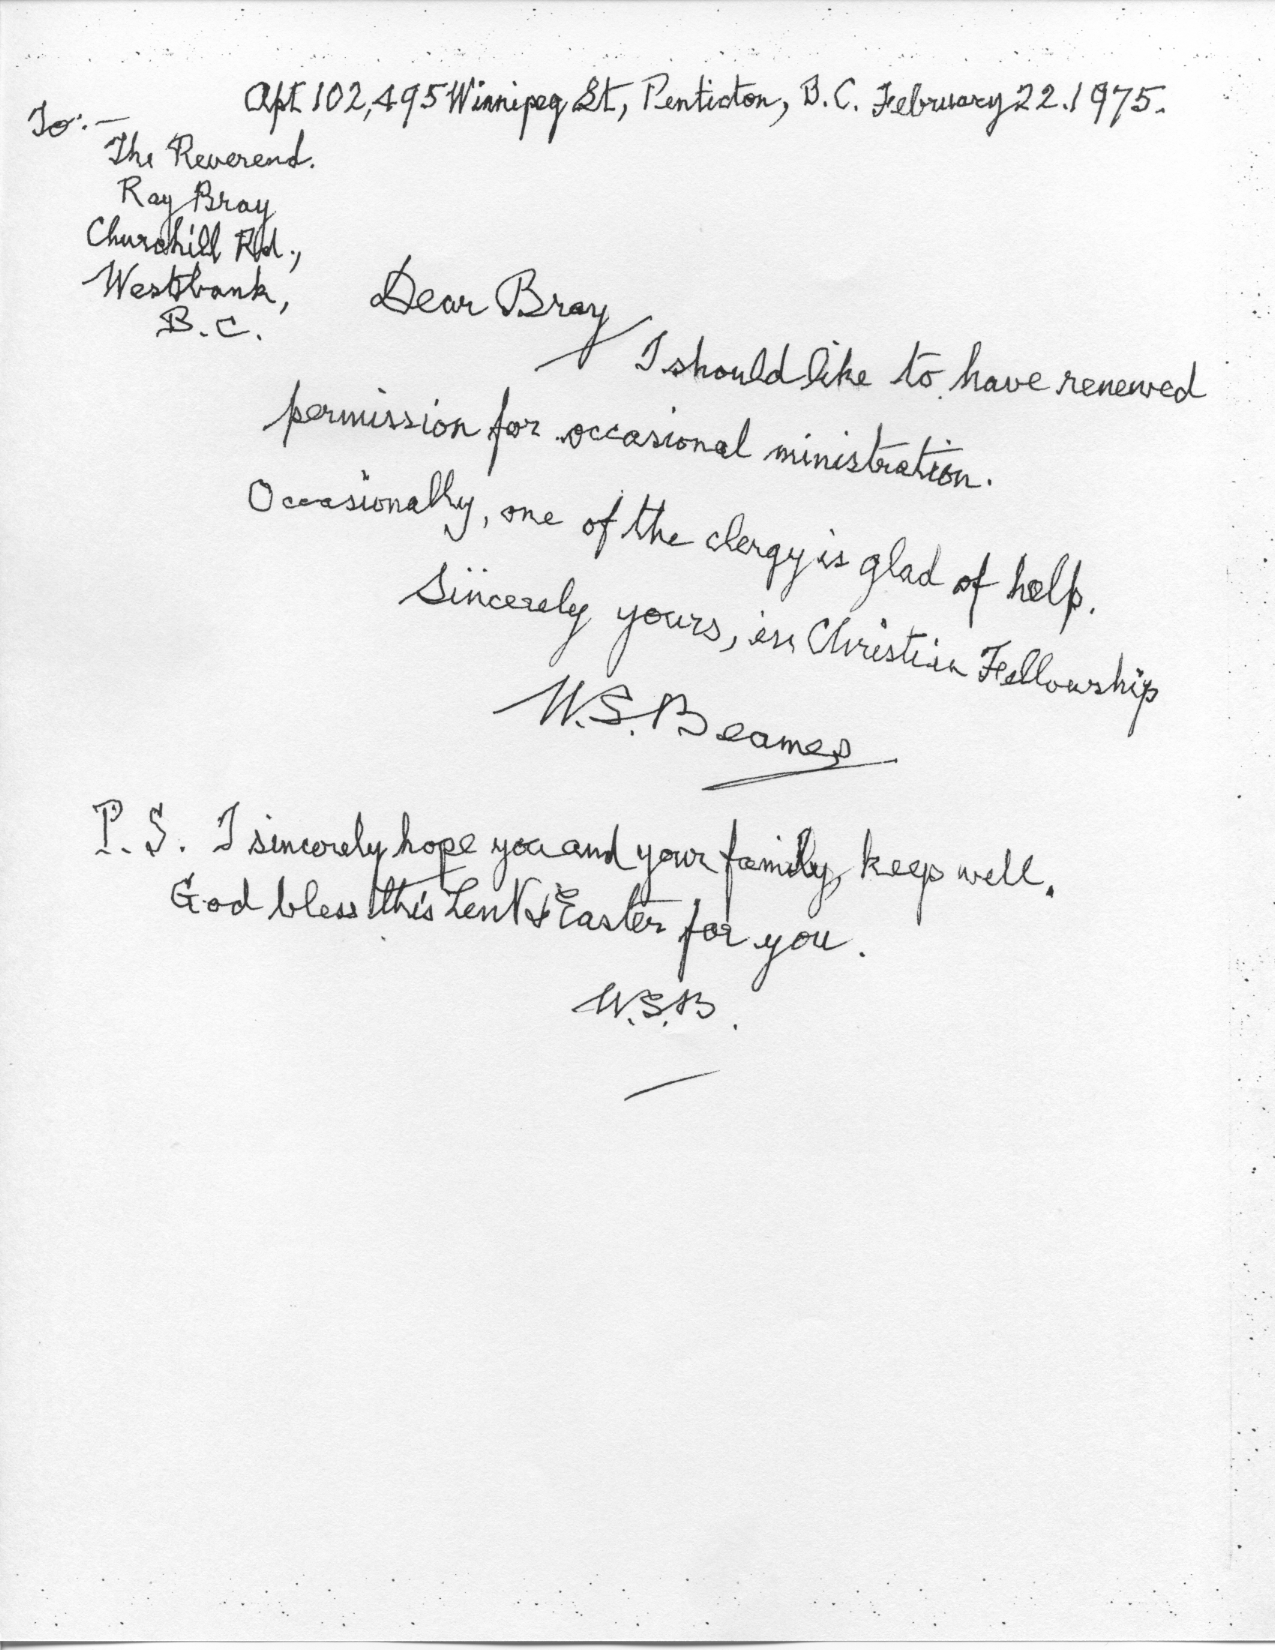 Apt 102, 495 Winnipeg St, Penticton, B.C. February 22. 1975.
To:-
The Reverend.
Ray Bray
Churchill Rd.,
Westbank,
B.C.
Dear Bray
I should like to have renewed
permission for occasional ministration.
Occasionally, one of the clergy is glad of help.
Sincerely yours, in Christian Fellowship
W.S. Beames
P.S. I sincerely hope you and your family, keep well.
God bless this Lent & Easter for you.
W.S.B.